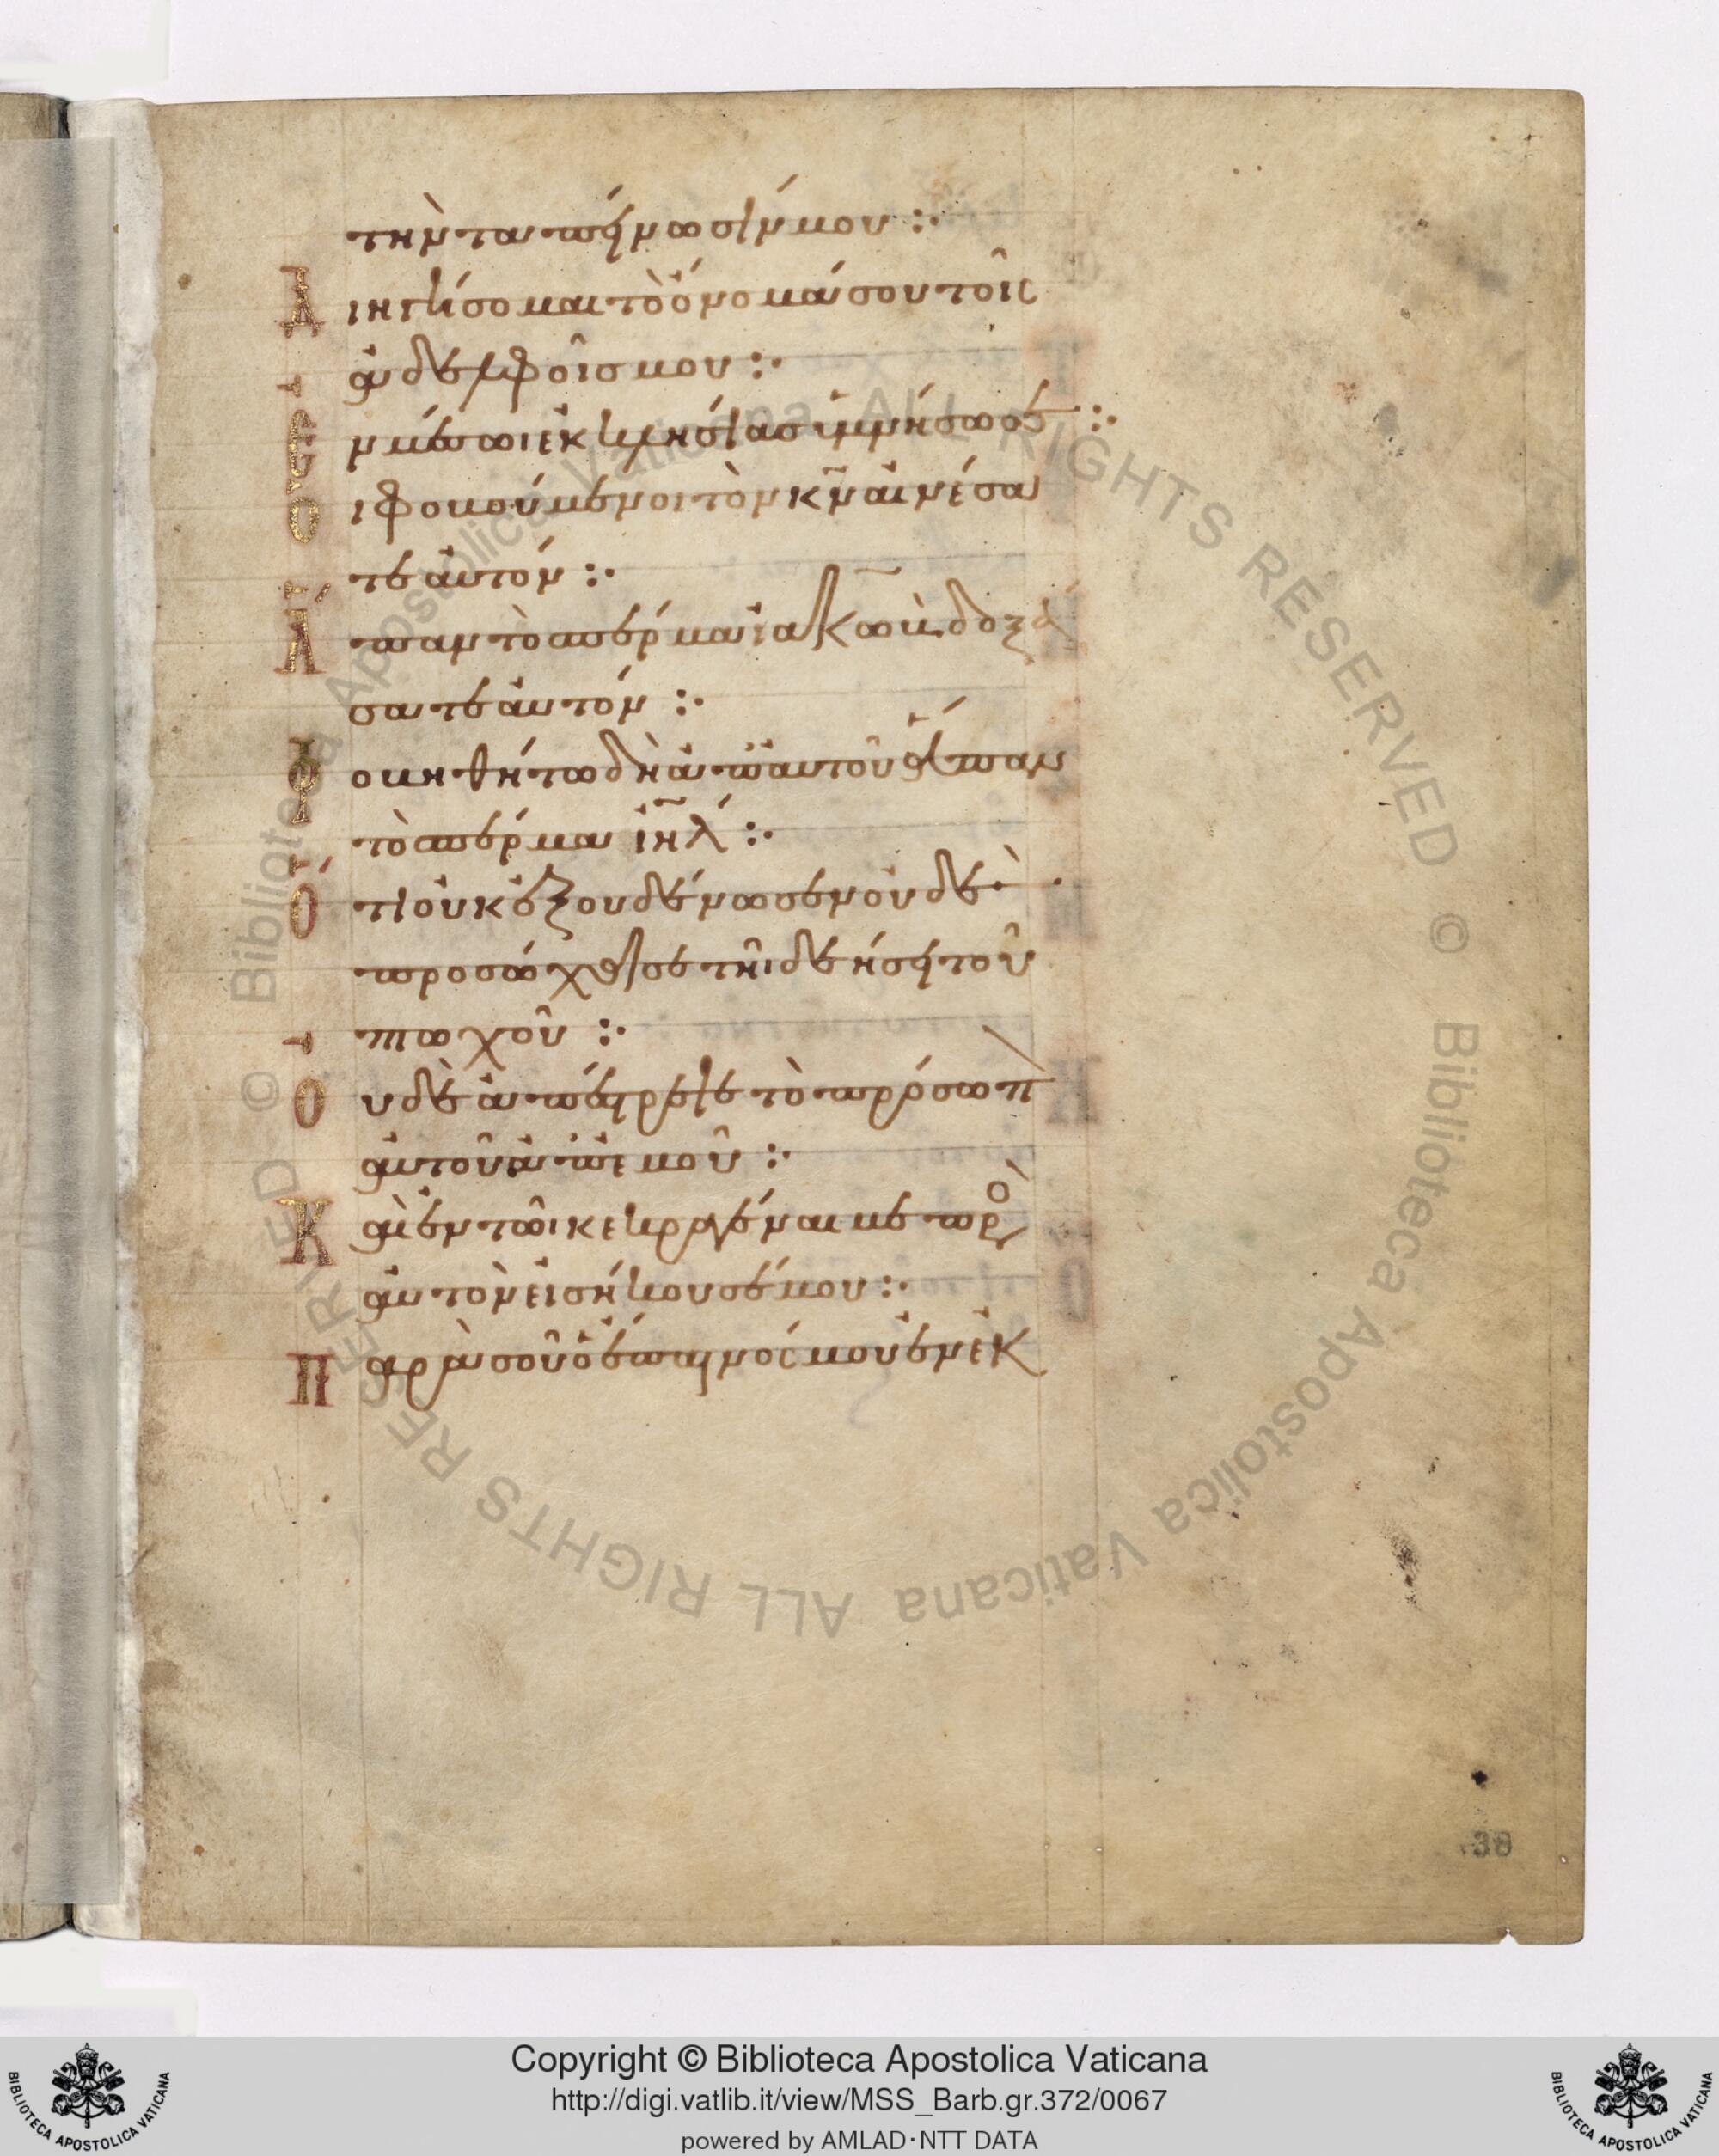 τὴν ταπείνωσίν μου :·
Διηγήσομαι τὸ ὄνομά σου τοῖς
ἀδελφοῖς μου :·
Ἐν μέσωι ἐκκλησίας ὑμνήσω σέ :·
Οἱ φοβούμενοι τὸν κ̅ν̅ αἰνέσα
τε αὐτόν :·
Ἅπαν τὸ σπέρμα ἰακὼβ δοξά
σατε αὐτόν :·
Φοβηθήτω δὴ ἀπ' αὐτοῦ ἅπαν
τὸ σπέρμα ι̅η̅λ̅ :·
Ὅτι οὐκ ἐξουδένωσεν οὐδὲ
προσώχθισε τῆι δεήσει τοῦ
πτωχοῦ :·
Οὐδὲ ἀπέστρεψε τὸ πρόσωπ
αὐτοῦ ἀπ' ἐμοῦ :·
Καὶ ἐν τῶι κεκραγέναι με πρὸ
αὐτὸν εἰσήκουσέ μου :·
Παρὰ σοῦ ὁ ἔπαινός μου ἐν ἐκ
38
Biblioteca Apostolica Vaticana ALL RIGHTS RESERVED © Biblioteca Apostolica Vaticana ALL RIGHTS RESERVED ©
Copyright © Biblioteca Apostolica Vaticana
http://digi.vatlib.it/view/MSS_Barb.gr.372/0067
powered by AMLAD·NTT DATA
BIBLIOTECA APOSTOLICA VATICANA
BIBLIOTECA APOSTOLICA VATICANA